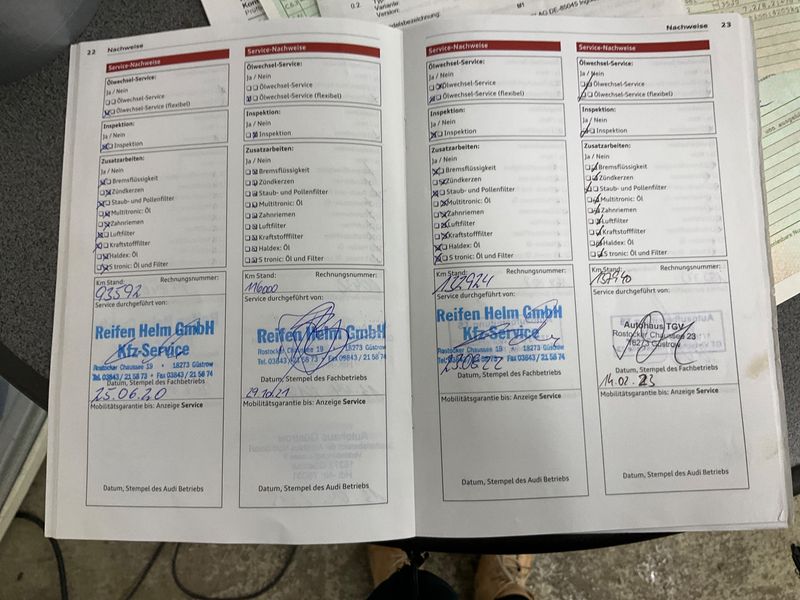 22 Nachweise
Service-Nachweise
Ölwechsel-Service:
Ja / Nein
Ölwechsel-Service
Ölwechsel-Service (flexibel)
Inspektion:
Ja / Nein
Inspektion
Zusatzarbeiten:
Ja / Nein
Bremsflüssigkeit
Zündkerzen
Staub- und Pollenfilter
Multitronic: Öl
Zahnriemen
Luftfilter
Kraftstofffilter
Haldex: Öl
S tronic: Öl und Filter
Km Stand: Rechnungsnummer:
93592
Service durchgeführt von:
Reifen Helm GmbH
Kfz-Service
Rostocker Chaussee 19 • 18273 Güstrow
Tel. 03843 / 21 58 73 • Fax 03843 / 21 58 74
Datum, Stempel des Fachbetriebs
25.06.20
Mobilitätsgarantie bis: Anzeige Service
Datum, Stempel des Audi Betriebs
Service-Nachweise
Ölwechsel-Service:
Ja / Nein
Ölwechsel-Service
Ölwechsel-Service (flexibel)
Inspektion:
Ja / Nein
Inspektion
Zusatzarbeiten:
Ja / Nein
Bremsflüssigkeit
Zündkerzen
Staub- und Pollenfilter
Multitronic: Öl
Zahnriemen
Luftfilter
Kraftstofffilter
Haldex: Öl
S tronic: Öl und Filter
Km Stand: Rechnungsnummer:
116000
Service durchgeführt von:
Reifen Helm GmbH
Kfz-Service
Rostocker Chaussee 19 • 18273 Güstrow
Tel. 03843 / 21 58 73 • Fax 03843 / 21 58 74
Datum, Stempel des Fachbetriebs
29.10.21
Mobilitätsgarantie bis: Anzeige Service
Datum, Stempel des Audi Betriebs
Nachweise 23
Service-Nachweise
Ölwechsel-Service:
Ja / Nein
Ölwechsel-Service
Ölwechsel-Service (flexibel)
Inspektion:
Ja / Nein
Inspektion
Zusatzarbeiten:
Ja / Nein
Bremsflüssigkeit
Zündkerzen
Staub- und Pollenfilter
Multitronic: Öl
Zahnriemen
Luftfilter
Kraftstofffilter
Haldex: Öl
S tronic: Öl und Filter
Km Stand: Rechnungsnummer:
132924
Service durchgeführt von:
Reifen Helm GmbH
Kfz-Service
Rostocker Chaussee 19 • 18273 Güstrow
Tel. 03843 / 21 58 73 • Fax 03843 / 21 58 74
23.06.22
Datum, Stempel des Fachbetriebs
Mobilitätsgarantie bis: Anzeige Service
Datum, Stempel des Audi Betriebs
Service-Nachweise
Ölwechsel-Service:
Ja / Nein
Ölwechsel-Service
Ölwechsel-Service (flexibel)
Inspektion:
Ja / Nein
Inspektion
Zusatzarbeiten:
Ja / Nein
Bremsflüssigkeit
Zündkerzen
Staub- und Pollenfilter
Multitronic: Öl
Zahnriemen
Luftfilter
Kraftstofffilter
Haldex: Öl
S tronic: Öl und Filter
Km Stand: Rechnungsnummer:
Service durchgeführt von:
Autohaus TGV
Rostocker Chaussee 23
18273 Güstrow
Datum, Stempel des Fachbetriebs
14.02.23
Mobilitätsgarantie bis: Anzeige Service
Datum, Stempel des Audi Betriebs